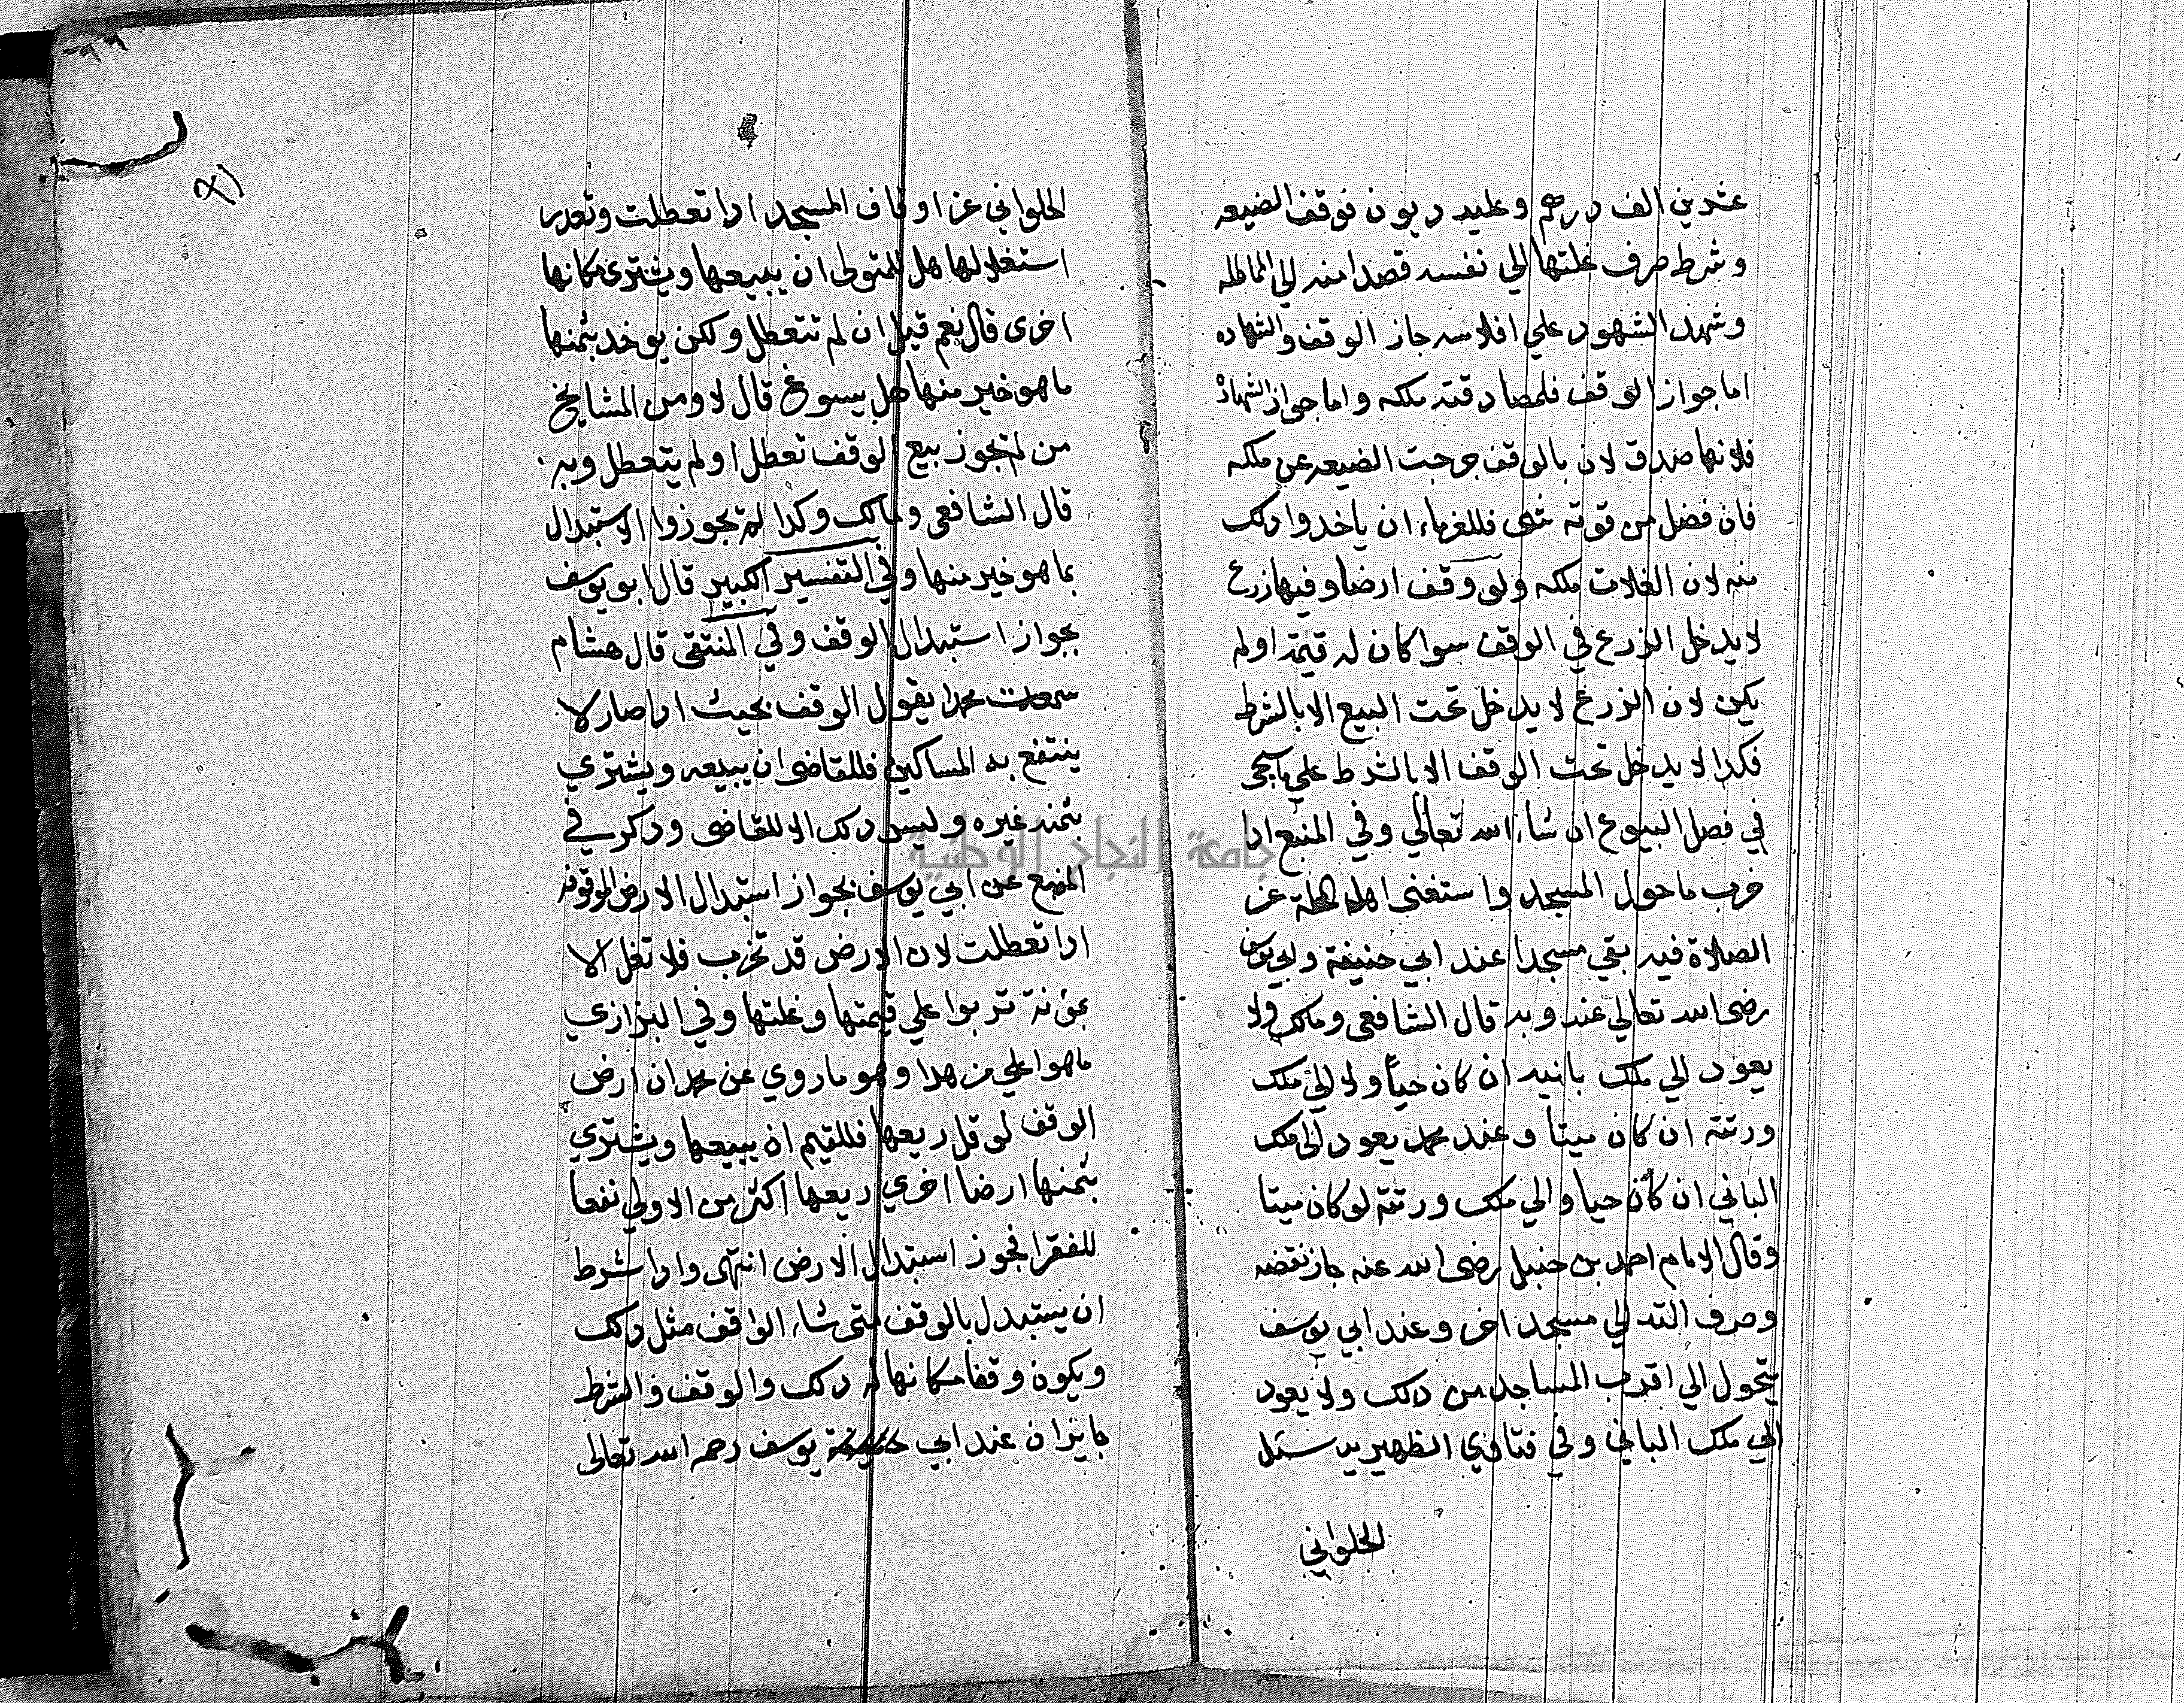 عشرين الف درهم وعليه ديون فوقف الضيعه
وشرط صرف غلتها الي نفسه قصدا منه الي المماطله
وشهد الشهود علي افلاسه جاز الوقف والشهاده
اما جواز الوقف فلمصادقته ملكه واما جواز الشهادة
فلانها صدق لان بالوقف خرجت الضيعه عن ملكه
فان فضل من قوته شي فللغرماء ان ياخدوا دلك
منه لان الغلات ملكه ولو وقف ارضا وفيها زرع
لا يدخل الزرع في الوقف سوا كان له قيمة او لم
يكن لان الزرع لا يدخل تحت البيع الا بالشرط
فكدا لا يدخل تحت الوقف الا بالشرط علي ما يجي
في فصل البيوع ان شاء الله تعالي وفي المنبع ادا
خرب ما حول المسجد واستغني اهل المحلة عن
الصلاة فيه بقي مسجدا عند ابي حنيفة وابي يوسف
رضى الله تعالي عنه وبه قال الشافعي ومالك ولا
يعود الي ملك بانيه ان كان حيا ولا الي ملك
ورثته ان كان ميتا وعند محمد يعود الي ملك
الباني ان كان حيا والي ملك ورثته لو كان ميتا
وقال الامام احمد بن حنبل رضى الله عنه جاز نقضه
وصرف الته الي مسجد اخر وعند ابي يوسف
يتحول الي اقرب المساجد من دلك ولا يعود
الي ملك الباني وفي فتاوي الظهيريه سئل
الحلواني
الحلواني عن اوقاف المسجد ادا تعطلت وتعدر
استغلالها هل للمتولي ان يبيعها ويشتري مكانها
اخرى قال نعم قيل ان لم تتعطل ولكن يوخد بثمنها
ما هو خير منها هل يسوغ قال لا ومن المشايخ
من لم يجوز بيع الوقف تعطل او لم يتعطل وبه
قال الشافعي ومالك وكدا لم يجوزوا الاستبدال
بما هو خير منها وفي التفسير الكبير قال ابو يوسف
بجواز استبدال الوقف وفي المنتقى قال هشام
سمعت محمدا يقول الوقف بحيث ادا صار لا
ينتفع به المساكين فللقاضى ان يبيعه ويشتري
بثمنه غيره وليس دلك الا للقاضى ودكر في
المنبع عن ابي يوسف بجواز استبدال الارض الموقوفه
ادا تعطلت لان الارض قد تخرب فلا تغل الا
بمؤنة تربوا علي قيمتها وغلتها وفي البزازي
ما هو اعلي من هدا وهو ما روي عن محمد ان ارض
الوقف لو قل ريعها فللقيم ان يبيعها ويشتري
بثمنها ارضا اخري ريعها اكثر من الاولي نفعا
للفقرا فجوز استبدال الارض انتهى وادا شرط
ان يستبدل بالوقف متى شاء الواقف مثل دلك
ويكون وقفا مكانها له دلك والوقف والشرط
جايزان عند ابي يوسف رحمه الله تعالى
جامعة النجاح الوطنية